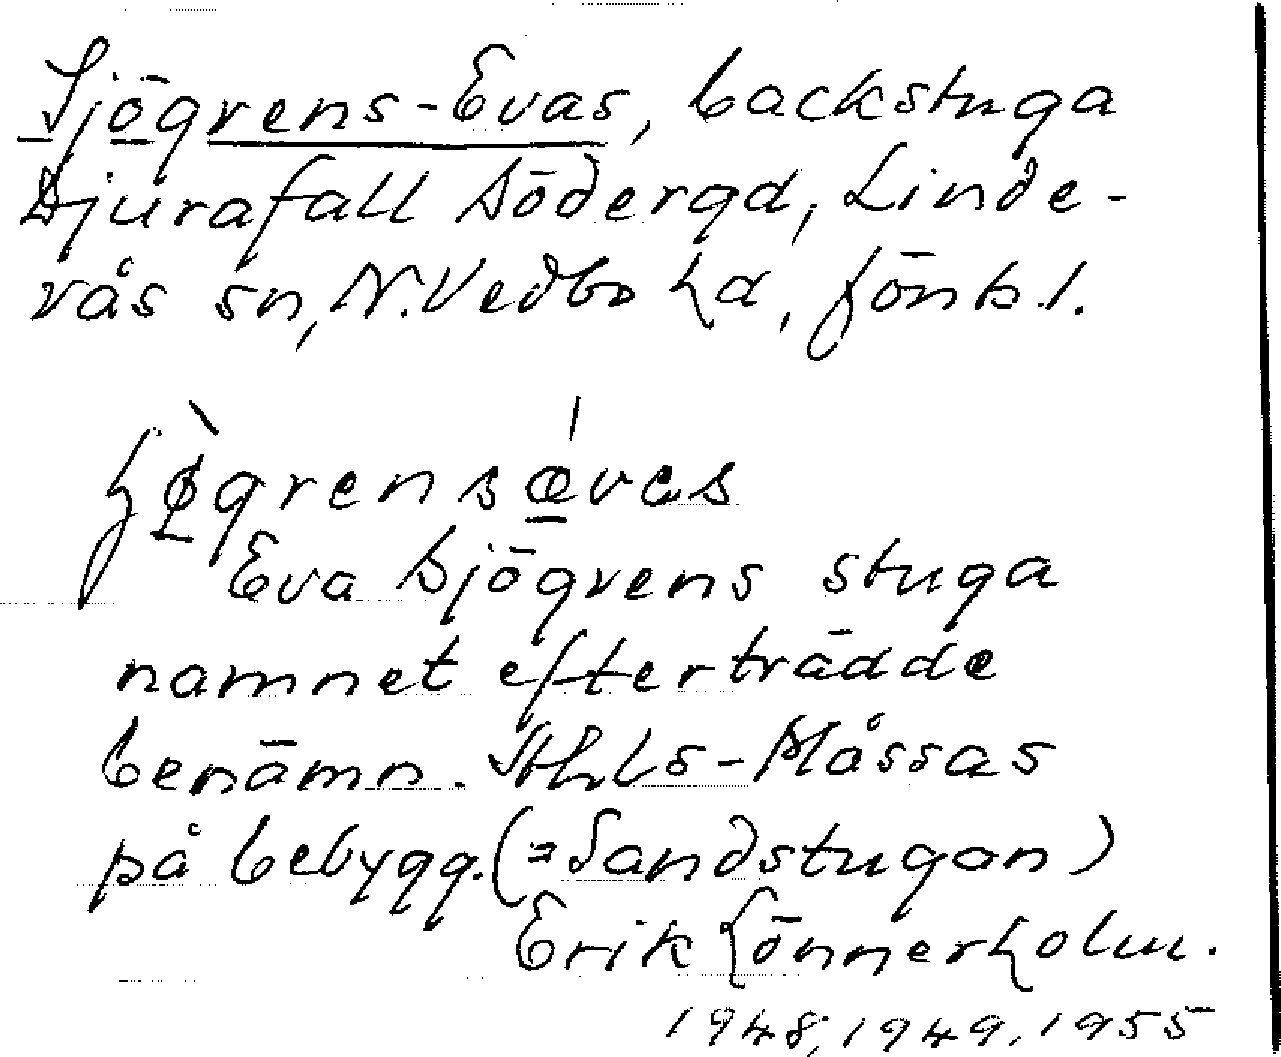 Sjögrens-Evas, backstuga
Djurafall Söderqd, Linde-
vås sn, N. Vedbo hd, Jönk l.
Eva Sjögrens stuga
namnet efterträdde
benämn. Sthls-Måssas
på bebygg. (=Sandstugan)
Erik Lönnerholm.
1948, 1949, 1955